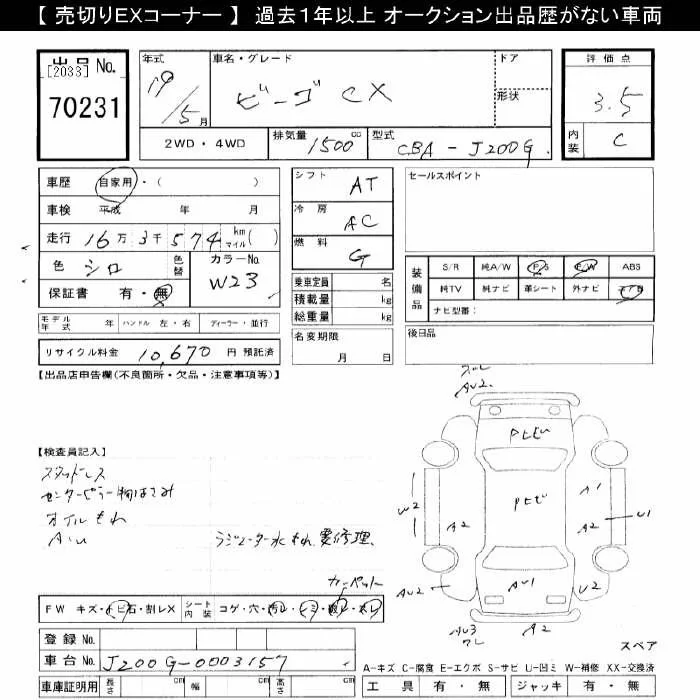 【 売切りEXコーナー 】 過去1年以上 オークション出品歴がない車両
出品 No.
[2033]
70231
年式 19/5月
車名・グレード ビーゴ CX
ドア
形状
評価点 3.5
内装 C
2WD・4WD 排気量 1500 cc 型式 CBA-J200G
車歴 自家用・( )
車検 平成 年 月
走行 16万3千574 km マイル( )
色 シロ 色替 カラーNo. W23
保証書 有・無
モデル年式 年 ハンドル 左・右 ディーラー・並行
リサイクル料金 10,670 円 預託済
シフト AT
冷房 AC
燃料 G
乗車定員 名
積載量 kg
総重量 kg
名変期限 月 日
セールスポイント
装備品 S/R 純A/W P/S P/W ABS
純TV 純ナビ 革シート 外ナビ エアB
ナビ型番:
後日品
【出品店申告欄(不良箇所・欠品・注意事項等)】
【検査員記入】
スタッドレス
センターピラー
オイルもれ
ラジエーター水もれ 要修理
カーペット
AU2
Pトビ
Pトビ
A1
W2
A2
A2
U1
AU2
AU1
U2
AU3
ワレ
A2
FW キズ・トビ石・割レX シート内装 コゲ・穴・汚レ・シミ・破レ・スレ
登録 No.
車台 No. J200G-0003157
車庫証明用 長さ cm 幅 cm 高さ cm
スペア
A-キズ C-腐食 E-エクボ S-サビ U-凹ミ W-補修 XX-交換済
工具 有・無 ジャッキ 有・無